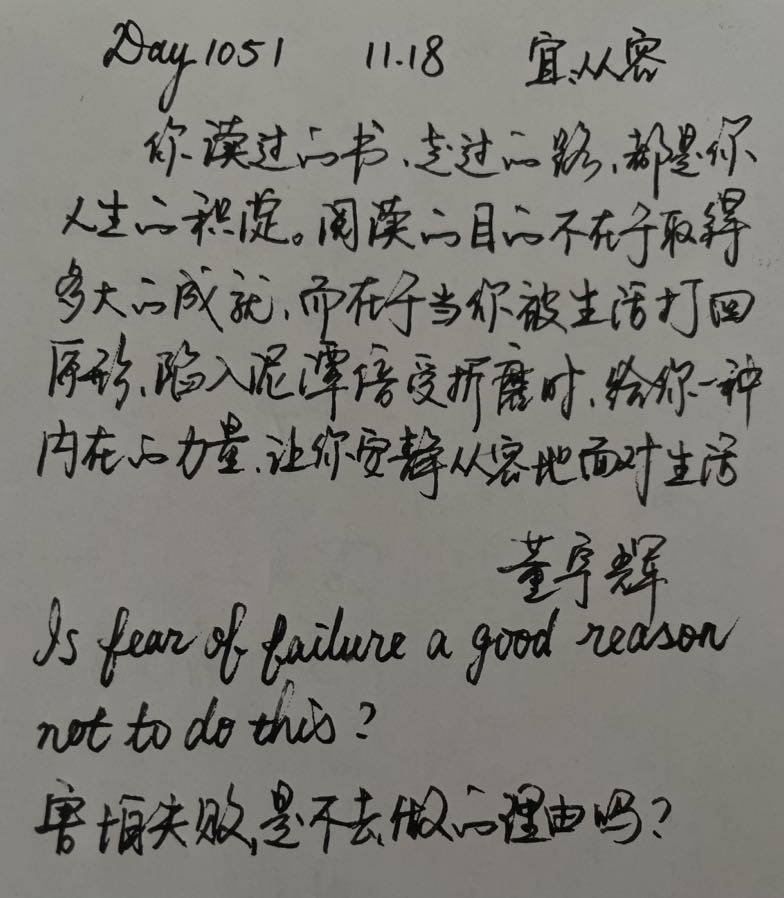 Day 1051 11.18 宜从容
你读过的书、走过的路,都是你
人生的积淀。阅读的目的不在于取得
多大的成就,而在于当你被生活打回
原形,陷入泥潭倍受折磨时,给你一种
内在的力量,让你安静从容地面对生活
董宇辉
Is fear of failure a good reason
not to do this?
害怕失败,是不去做的理由吗?